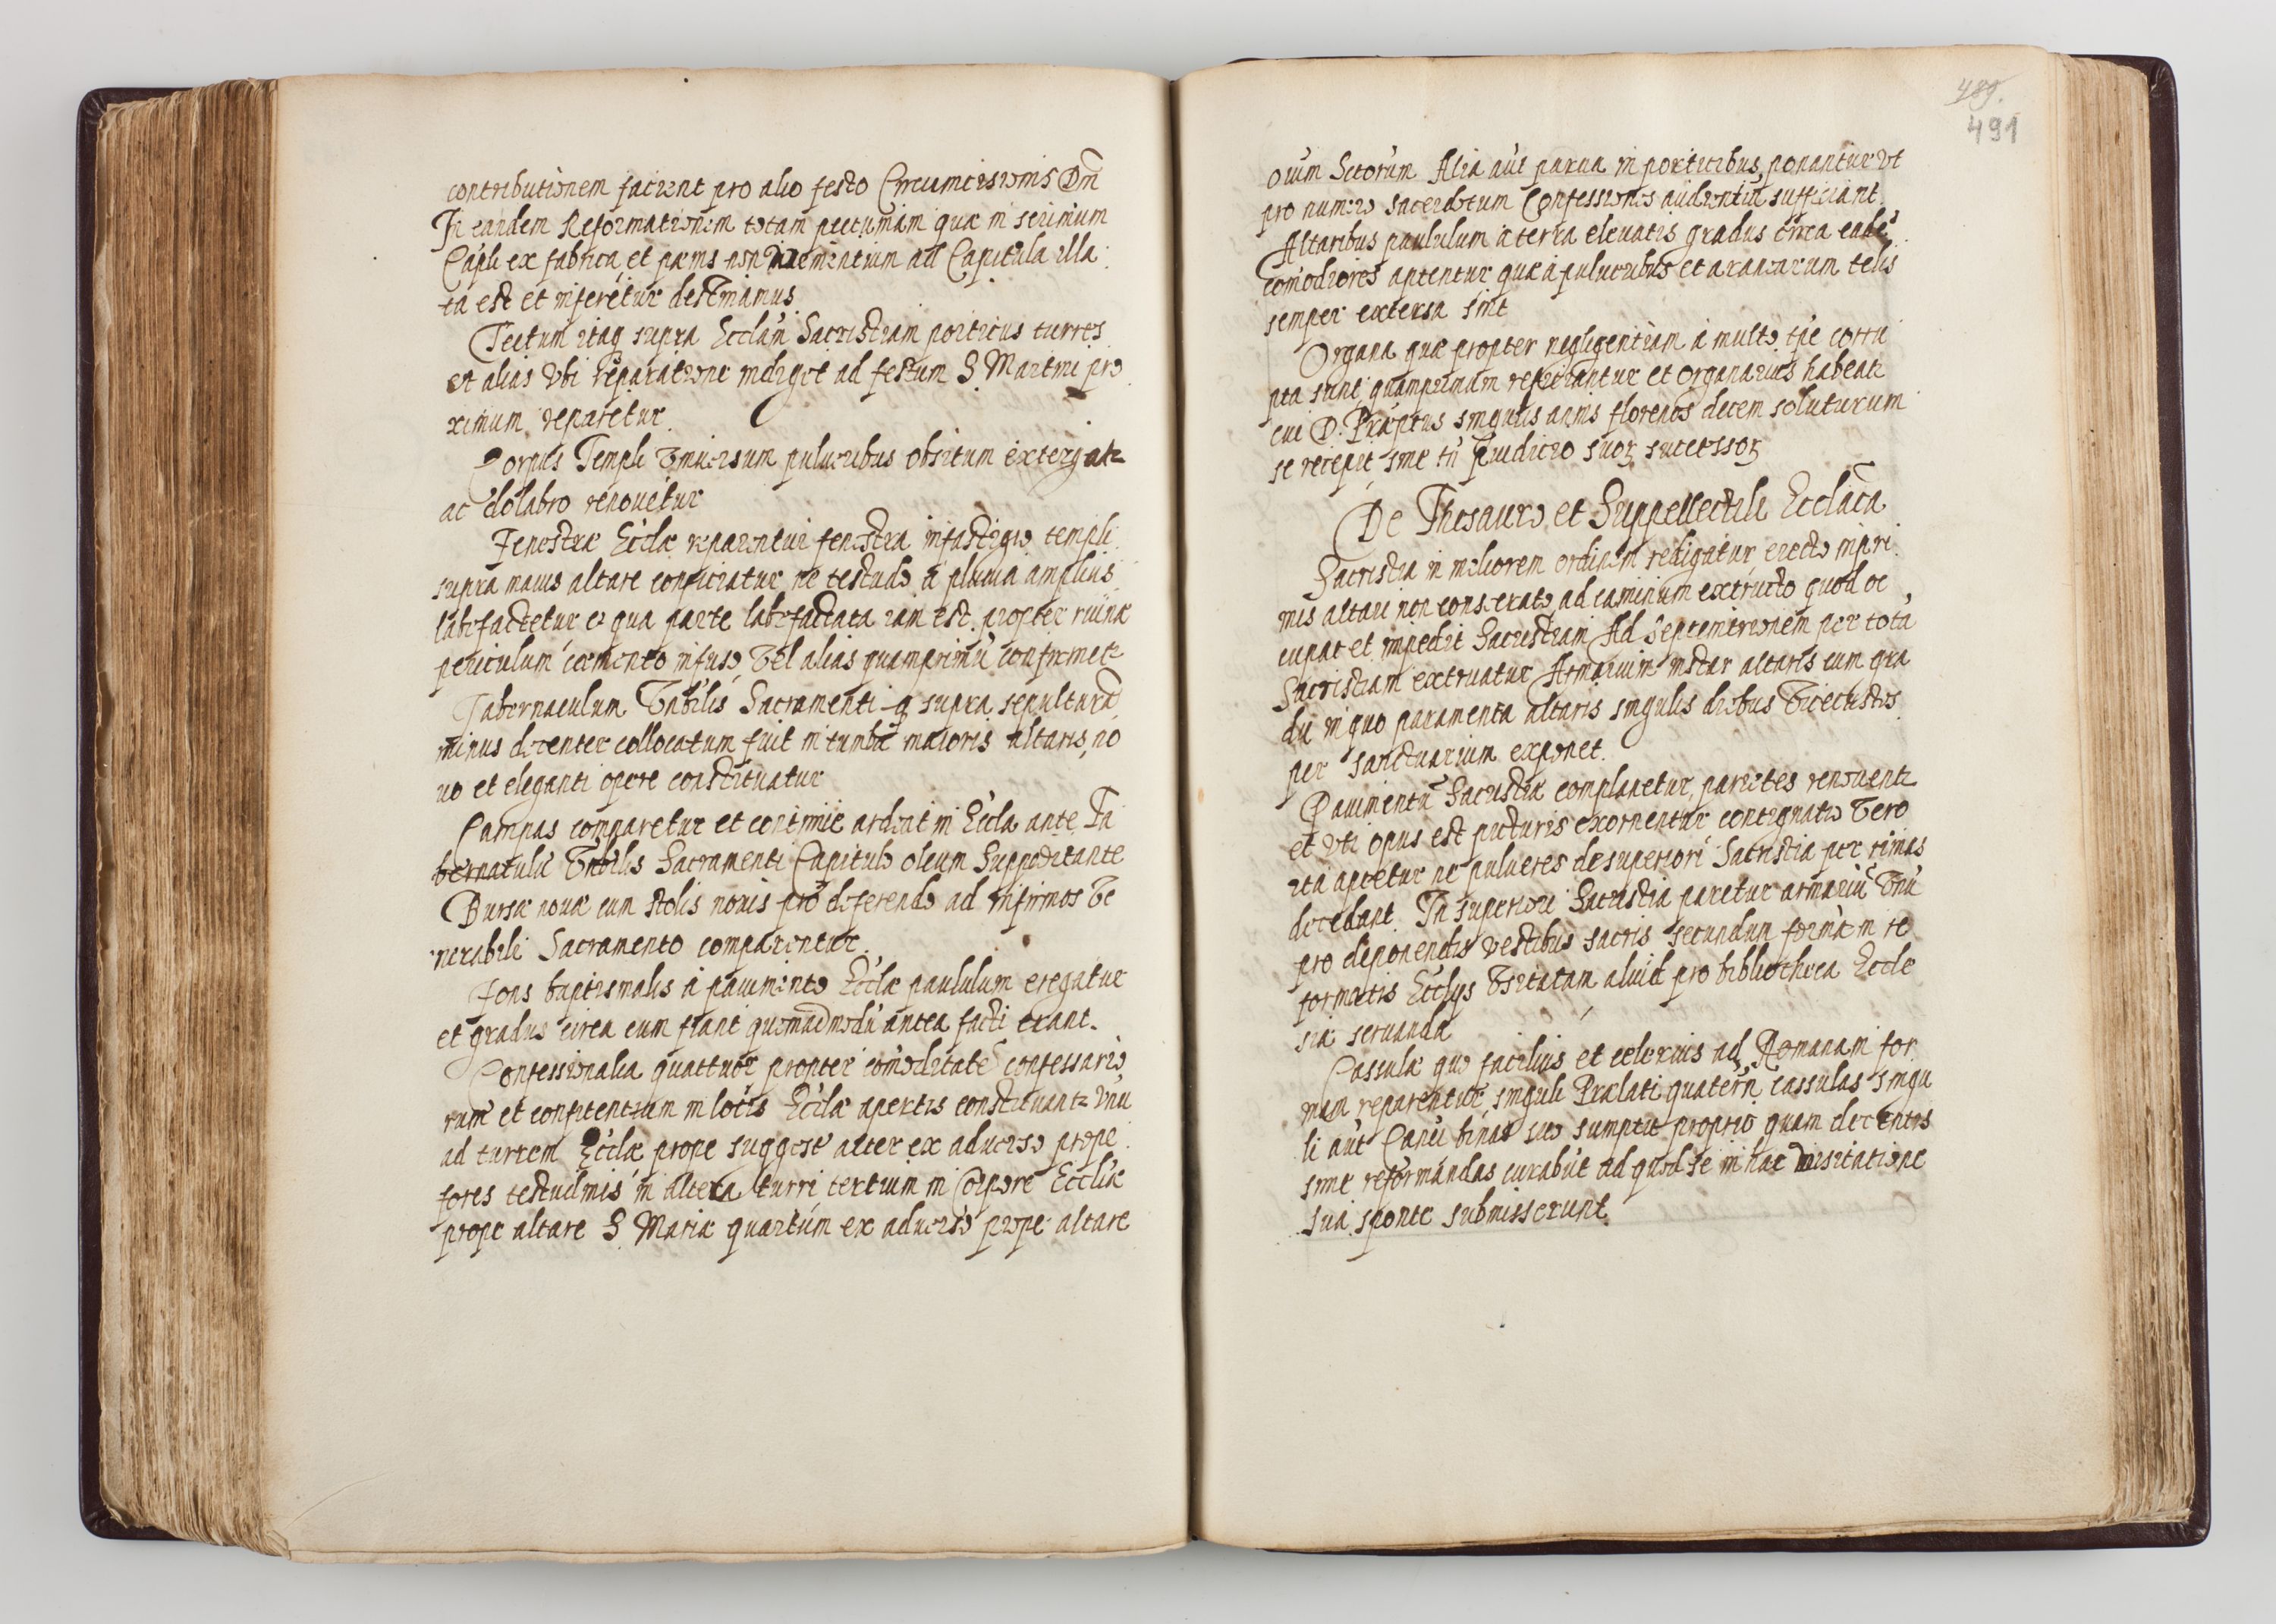 contributionem facient pro alio festo Circumcisionis Dñi
In eandem Reformationem totam pecuniam quæ in scrinium
Capli ex fabrica et pœnis non venientium ad Capitula illa
ta est et inferetur destinamus.
Tectum itaq supra Ecclam Sacristiam porticus turres
et alias vbi reparatione indiget ad festum S. Martini pro
ximum reparetur.
Corpus Templi vniuersum pulueribus obsitum extergatr
ac dolabro renouetur
Fenestræ Ecclæ reparentur fenestra in fastigio templi
supra maius altare conficiatur ne testudo à pluuia amplius
labefactetur et qua parte labefactata iam est propter ruinæ
periculum cœmento infuso vel alias quamprimū confirmetr
Tabernaculum Vnbilis Sacramenti q supra sepulturā
minus decenter collocatum fuit in tumba maioris altaris, no
uo et eleganti opere constituatur
Lampas comparetur et continuè ardeat in Eccla ante Ta
bernaculū Vnbilis Sacramenti Capitulo oleum suppeditante
Bursæ nouæ cum stolis nouis pro deferendo ad infirmos Ve
nerabili Sacramento comparentur.
Fons baptismalis à pauimento Ecclæ paululum erigatur
et gradus circa eum fiant quemadmodū antea facti erant.
Confessionalia quattuor propter comoditatē confessario
rum et confitentium in locis Ecclæ apertis constituantr vnū
ad turrem Ecclæ prope suggestū alter ex aduerso prope
fores testudinis in altera turri tertium in Corpore Eccliæ
prope altare S. Mariæ quartum ex aduerso prope altare
489.
491
oium Sctorum Alia aut parua in porticibus ponantur vt
pro numero sacerdotum Confessiones audientiū sufficiant.
Altaribus paululum à terra eleuatis gradus circa eadē
comodiores aptentur quæ à pulueribus et aranearum telis
semper extersa sint
Organa quæ propter negligentiam à multo tpe corru
pta sunt quamprimum reficiantur et Organarius habeatr
cui D. Præptus singulis annis florenos decem soluturum
se recepit sine tn pudicio suoꝝ sucessoꝝ
De Thesauro et Suppellectili Ecclāca
Sacristia in meliorem ordinem redigatur erecto inpri
mis altari non consecrato ad caminum extructo quod oc
cupat et impedit Sacristiam Ad Septemtrionem per totā
Sacristiam extruatur Armarium instar altaris cum gra
du in quo paramenta altaris singulis diebus Vicecustos
per sanctuarium exponet.
Pauimentū Sacristiæ complanetur, parietes renouentr
et vti opus est picturis exornentur contignatio vero
ita aptetur ne pulueres de superiori Sacristia per rimas
decedant. In superiori Sacristia paretur armariū vnū
pro deponendis vestibus sacris secundum formā in re
formatis Ecclijs vsitatam aliud pro bibliotheca Eccle
siæ seruanda
Cassulæ quo facilius et celerius ad Romanam for
mam reparentur singuli Prælati quatern cassulas singu
li aut Canci binas suo sumptu proprio quam decentes
sint reformandas curabūt ad quod se in hac visitatione
sua sponte submisserunt.